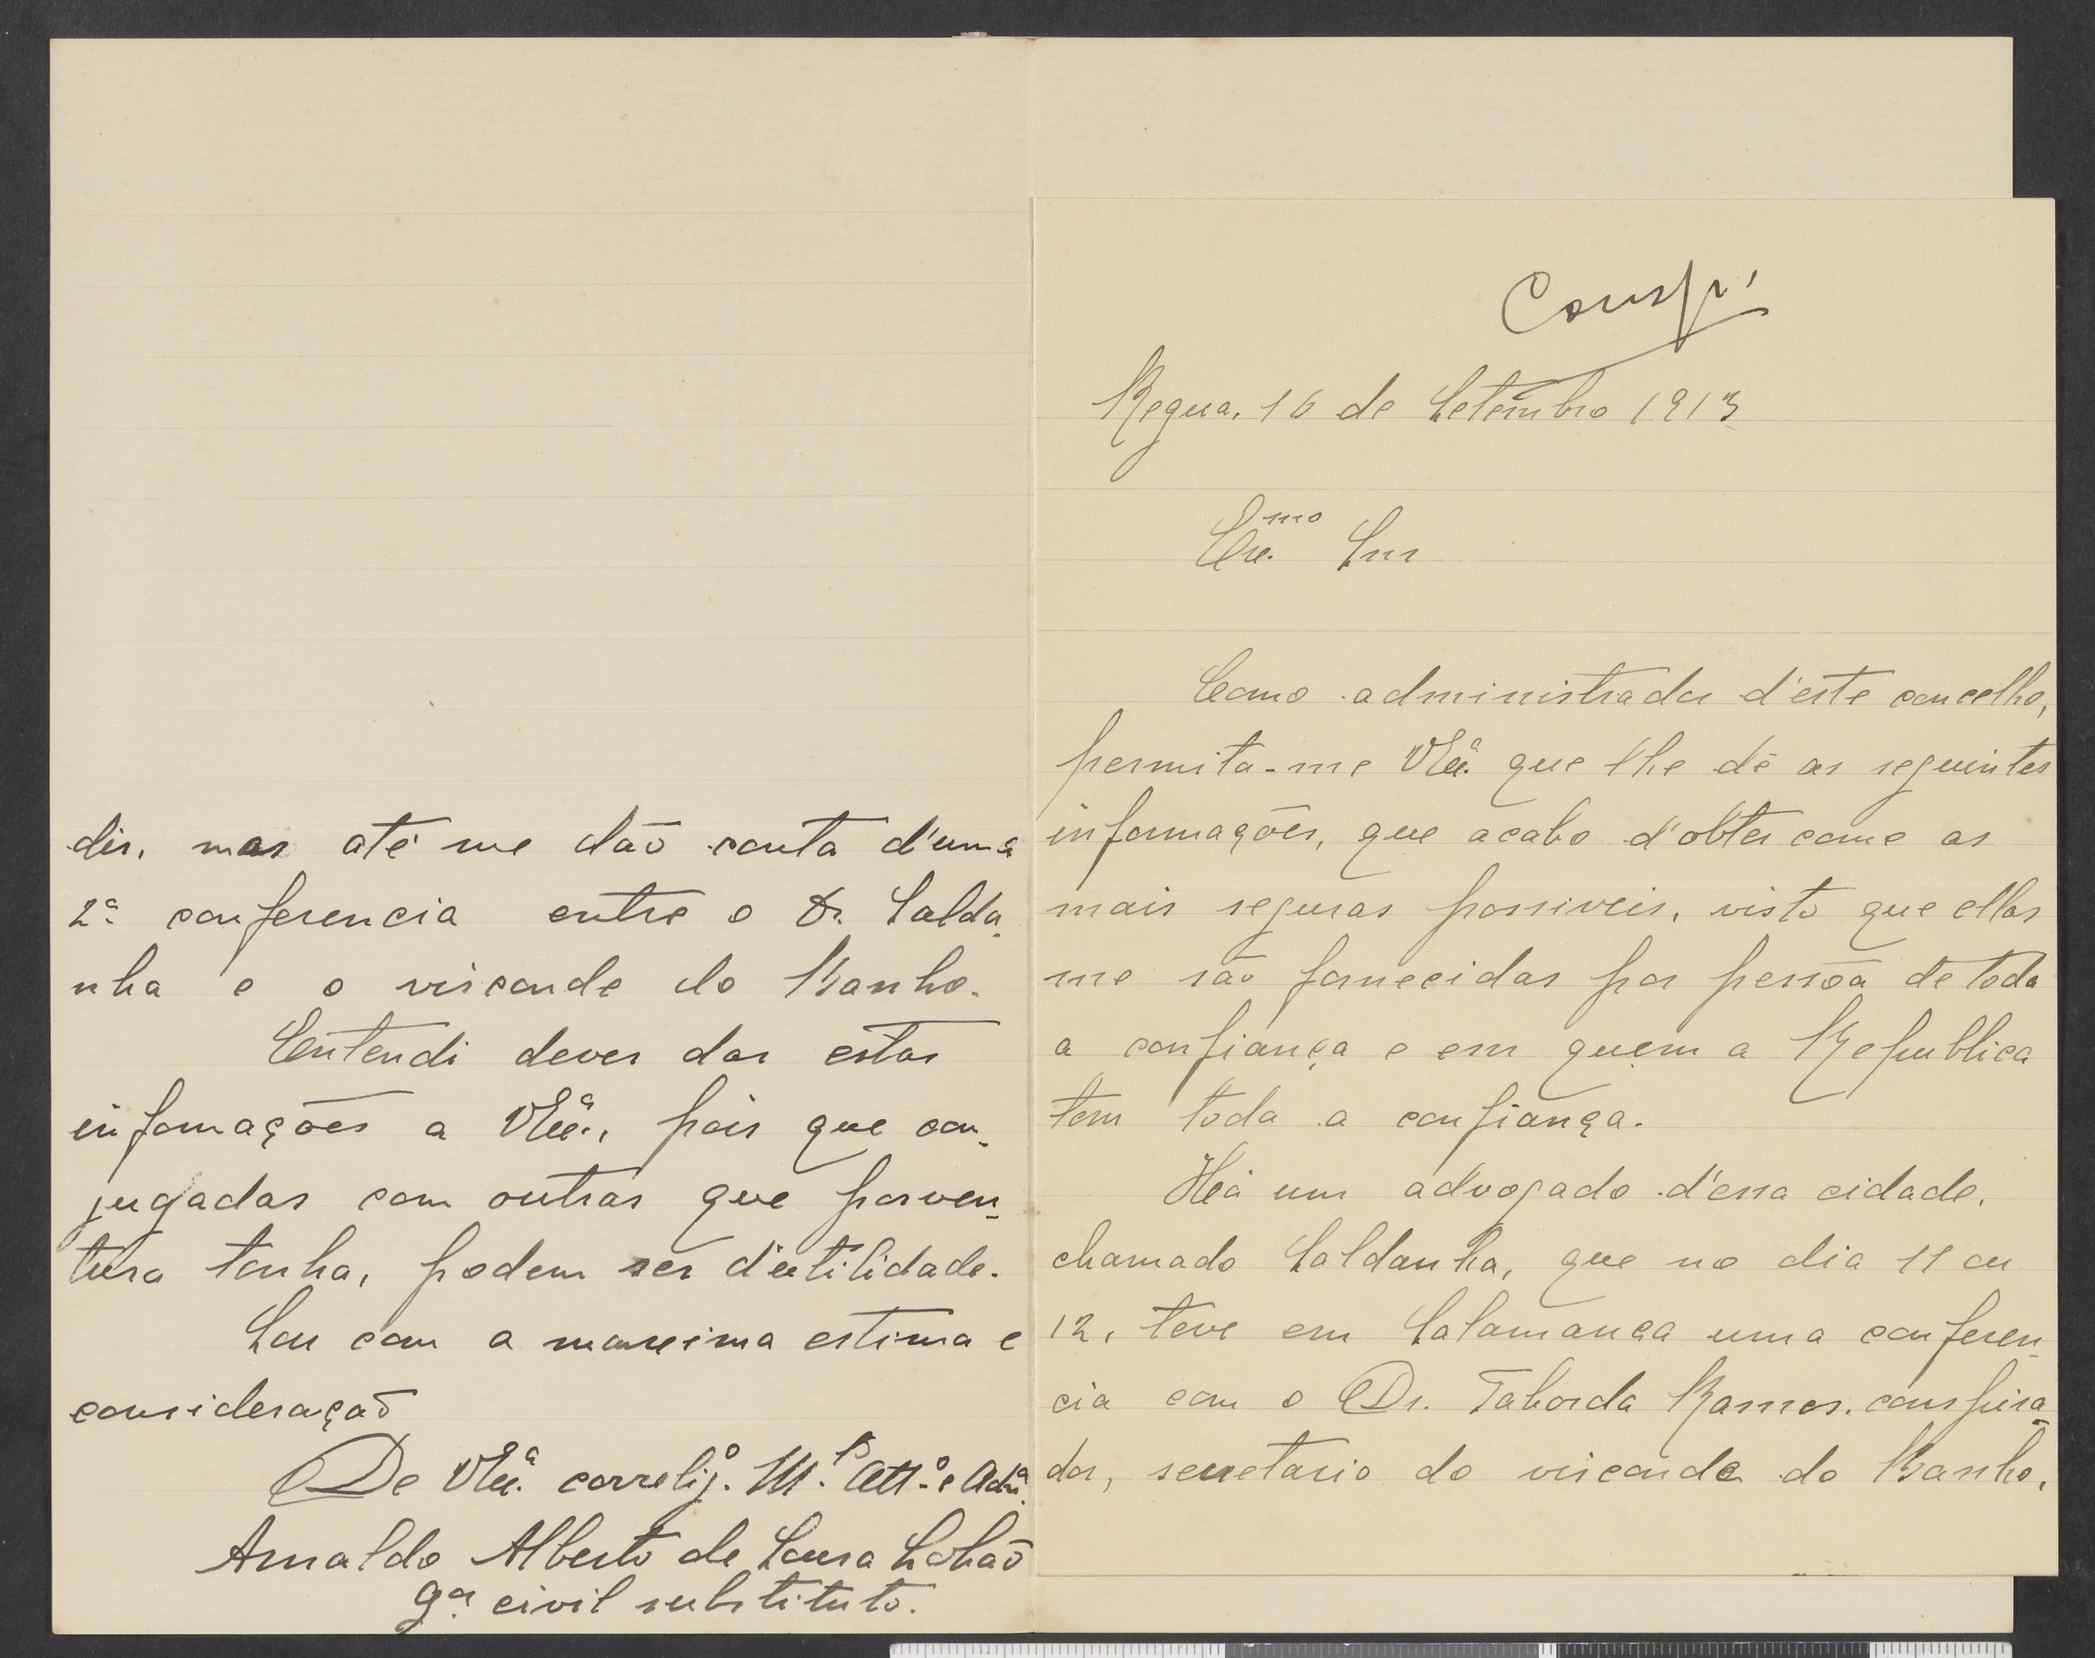 Conspi
Regua, 16 de Setembro 1913
Ex.mo Snr
Como administrador d'este concelho,
permita-me VEx.ª que lhe dê as seguintes
informações, que acabo d'obter como as
mais seguras possiveis, visto que ellas
me são fornecidas por pessôa de toda
a confiança e em quem a Republica
tem toda a confiança.
Há um advogado d'essa cidade,
chamado Saldanha, que no dia 11 ou
12, teve em Salamanca uma conferen-
cia com o Dr. Taborda Ramos, conspira-
dor, secretario do visconde do Banho,
dir, mas até me dão conta d'uma
2ª conferencia entre o Dr. Salda-
nha e o visconde do Banho.
Entendi dever dar estas
informações a VEx.ª, pois que con-
jugadas com outras que porven-
tura tenha, podem ser d'utilidade.
Sou com a maxima estima e
consideração
De VEx.ª correlig.º M.to Att.º e Adm.
Arnaldo Alberto de Sousa Lobão
G.or civil substituto.